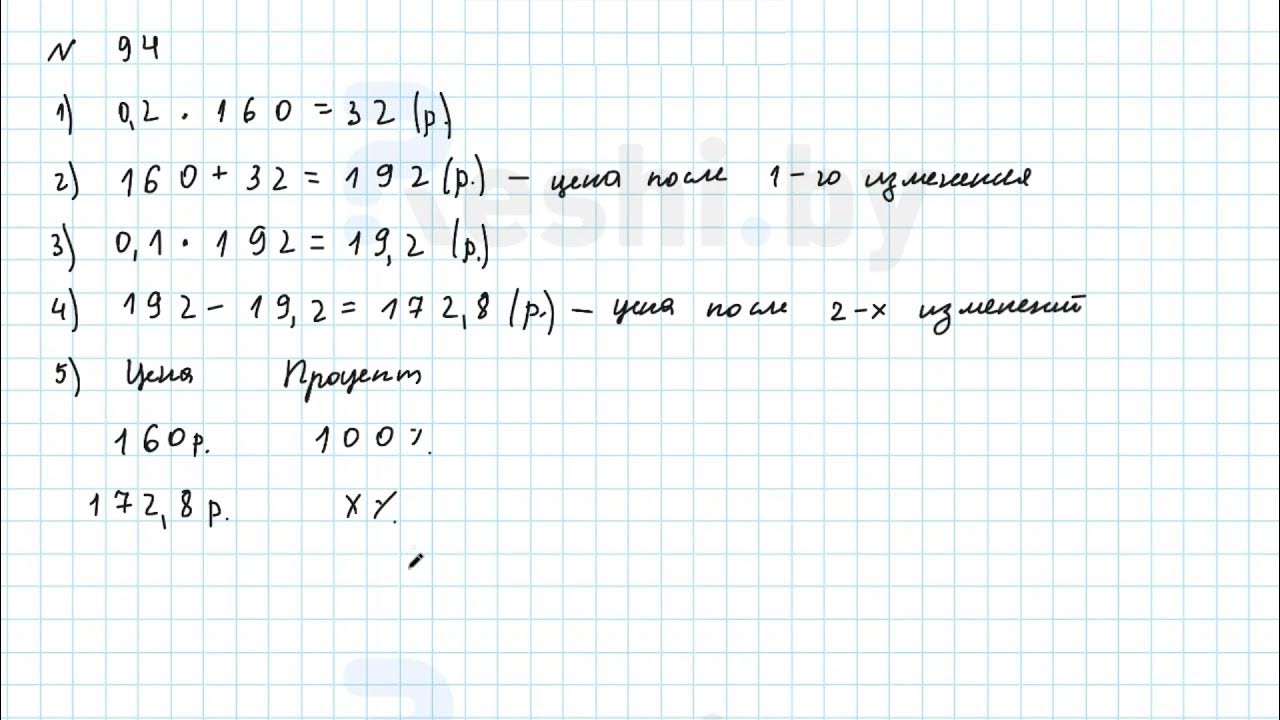 N 94
1) 0,2 · 160 = 32 (р.)
2) 160 + 32 = 192 (р.) – цена после 1-го изменения
3) 0,1 · 192 = 19,2 (р.)
4) 192 – 19,2 = 172,8 (р.) – цена после 2-х изменений
5) Цена Процент
160 р. 100 %
172,8 р. x %
Reshi.by